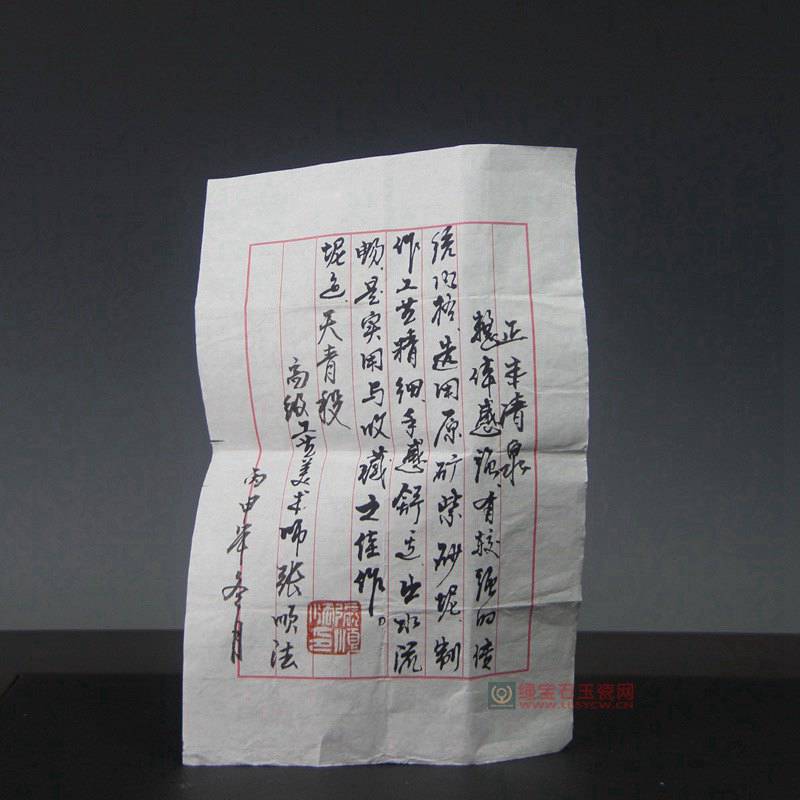 正丰清泉
整体感强、有较强的传
统风格、选用原矿紫砂坭、制
作工艺精细、手感舒适、出水流
畅、是实用与收藏之佳作。
坭色、天青段
高级工艺美术师张顺法
丙申年冬月
绿宝石玉瓷网
WWW.LBSYCW.CN